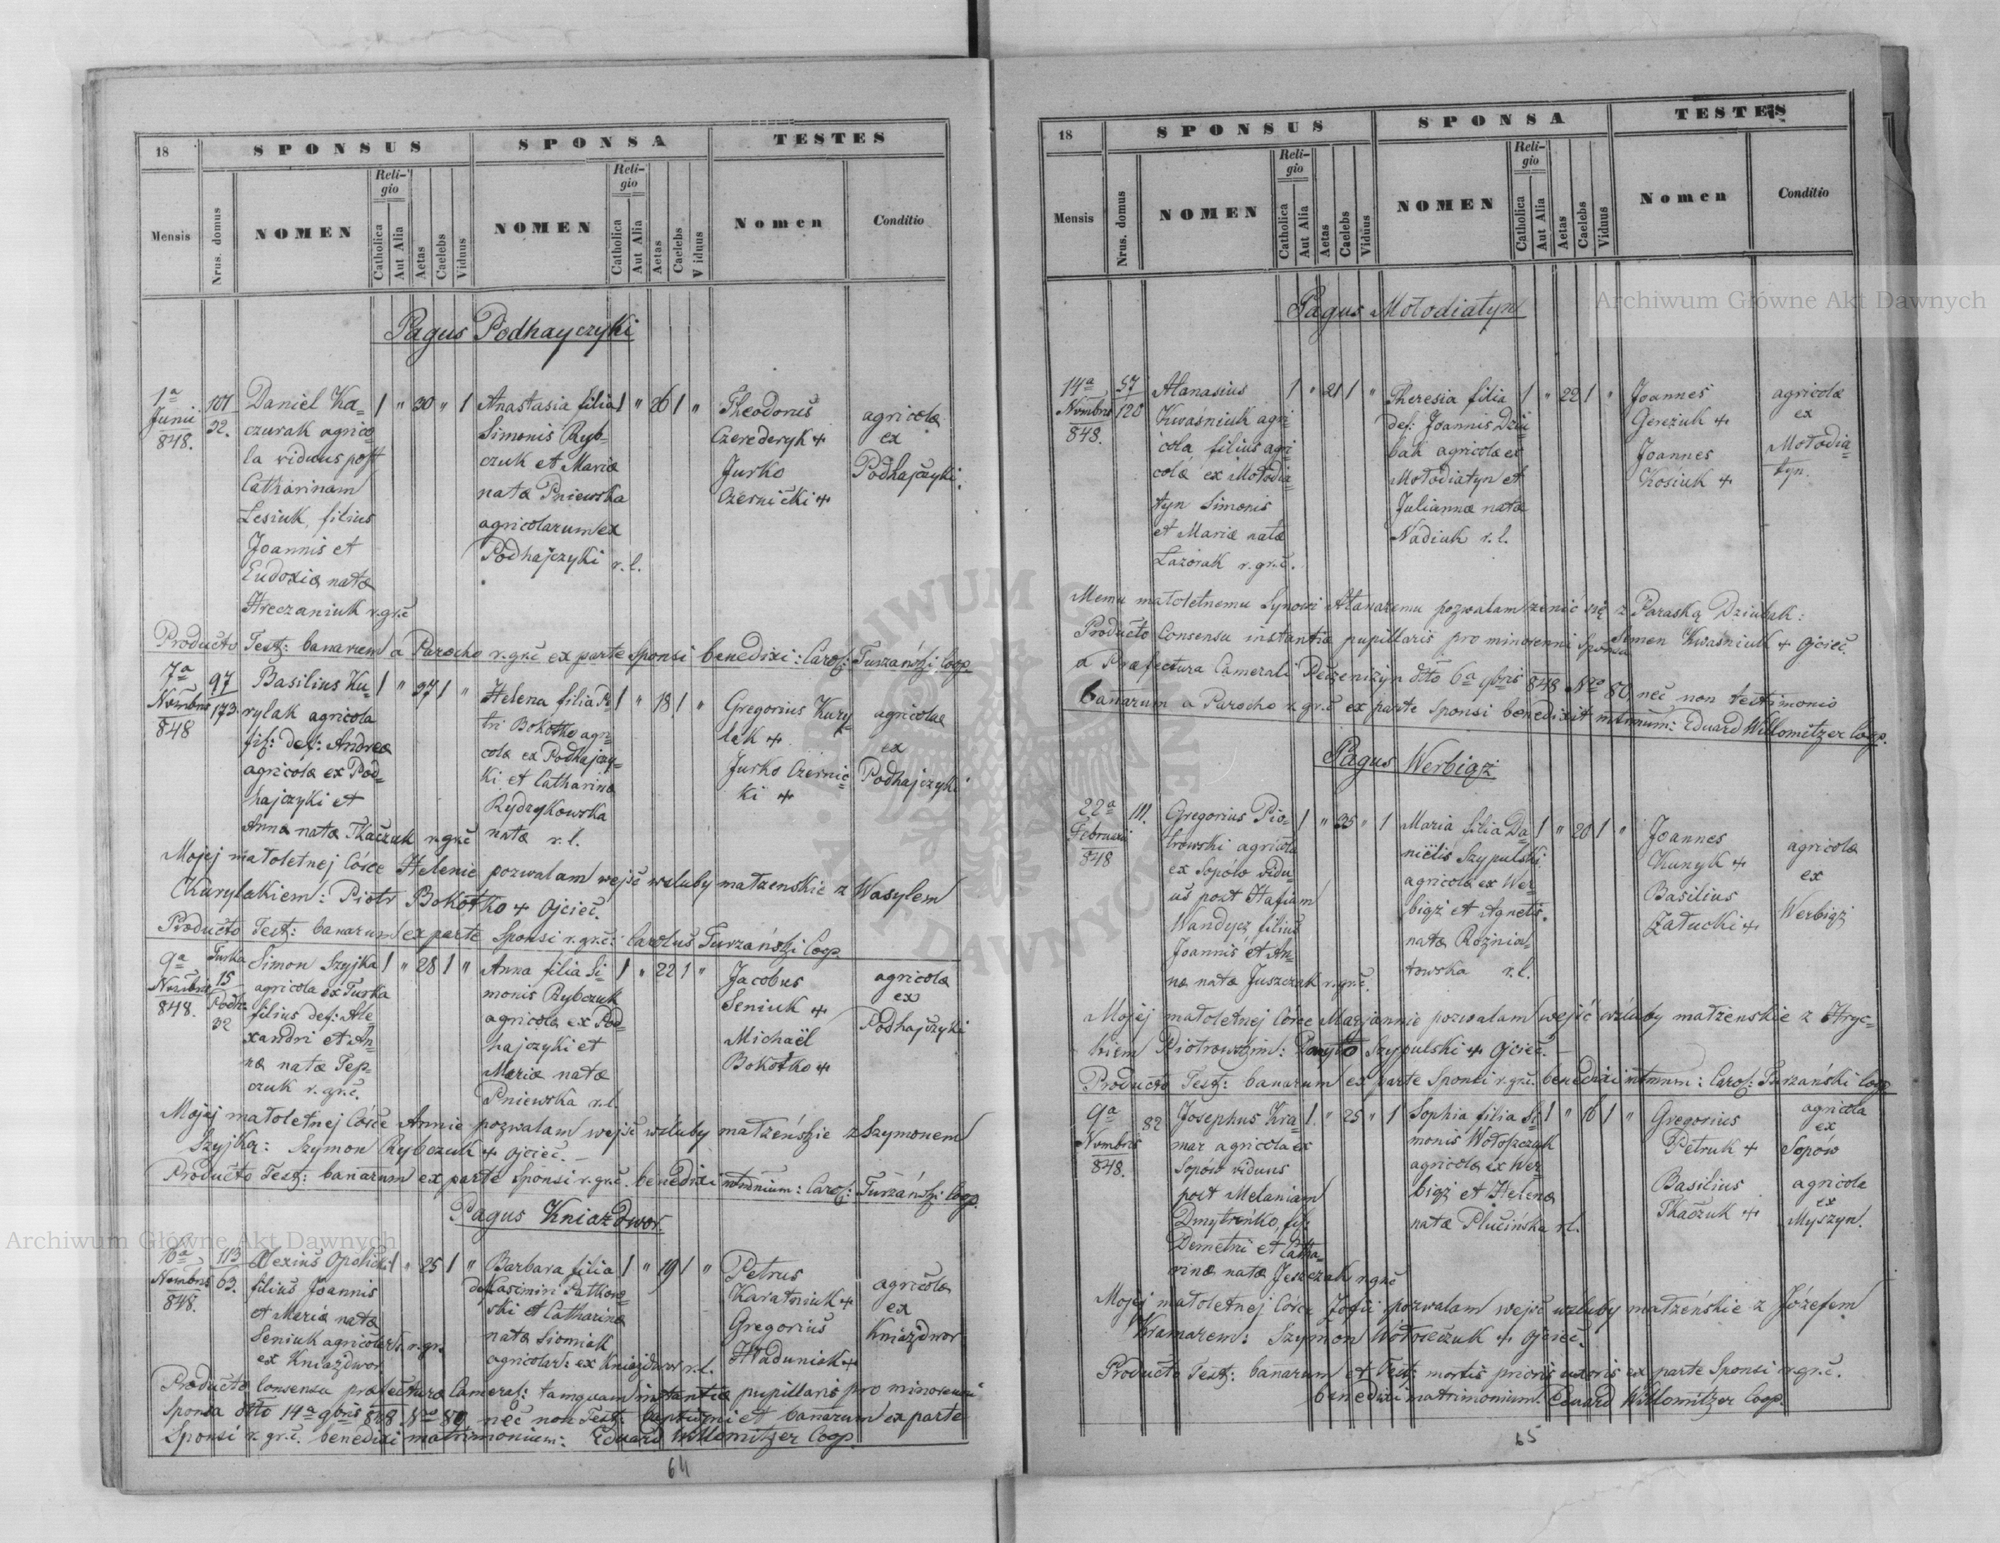 18
SPONSUS
SPONSA
TESTES
Mensis
Nrus. domus
NOMEN
Religio
Catholica
Aut Alia
Aetas
Caelebs
Viduus
NOMEN
Religio
Catholica
Aut Alia
Aetas
Caelebs
Viduus
Nomen
Conditio
Pagus Podhayczyki
1ª
Junii
848.
101
32.
Daniel Ka=
czurak agrico=
la viduus post
Catharinam
Lesiuk, filius
Joannis et
Eudoxiæ natæ
Hreczaniuk r.gr.č
1 " 30 " 1
Anastasia filia
Simonis Ryb=
czuk et Mariæ
natæ Pniewska
agricolarum ex
Podhajczyki r.l.
1 " 26 1 "
Theodorus
Czerederyk +
Jurko
Czernicki +
agricolæ
ex
Podhajczyki.
Producto Test: banarum a Parocho r.gr.č ex parte sponsi benedixi: Carol: Turzański Coop
7ª
Novembris
848
97
173
Basilius Ku=
rylak agricola
fil: def: Andreæ
agricolæ ex Pod=
hajczyki et
Annæ natæ Tkaczuk r.gr.č
1 " 37 1 "
Helena filia Pe=
tri Bokotko agri=
colæ ex Podhajczy=
ki et Catharinæ
Rydzykowska
natæ r.l.
1 " 18 1 "
Gregorius Kury=
lak +
Jurko Czernic=
ki +
agricolæ
ex
Podhajczyki
Mojej małoletniej Córce Helenie pozwalam wejść w śluby małżeńskie z Wasylem
Kurylakiem: Piotr Bokotko + Ojciec.
Producto Test: banarum ex parte Sponsi r.gr.č: Carolus Turzański Coop
9ª
Novembris
848.
Turka
15
Podh:
32
Simon Szyjka
agricola ex Turka
filius def: Ale
xandri et An=
næ natæ Tep=
czuk r.gr.č.
1 " 28 1 "
Anna filia Si=
monis Rybczuk
agricolæ ex Pod=
hajczyki et
Mariæ natæ
Pniewska r.l.
1 " 22 1 "
Jacobus
Seniuk +
Michaël
Bokotko +
agricolæ
ex
Podhajczyki
Mojej małoletniej Córce Annie pozwalam wejść w śluby małżeńskie z Szymonem
Szyjką: Szymon Rybczuk + Ojciec.
Producto Test: banarum ex parte Sponsi r.gr.č. benedixi mtrimonium: Carol: Turzański Coop.
Pagus Kniazdwor
16ª
Novembris
848.
113
63.
Alexius Opolicki
filius Joannis
et Mariæ natæ
Seniuk agricolar: r.gr.
ex Kniazdwor
1 " 25 1 "
Barbara filia
def: Casimiri Patkow=
ski et Catharinæ
natæ Slomiak
agricolar: ex Kniazdwor r.l.
1 " 19 1 "
Petrus
Karatniuk +
Gregorius
Hladuniak +
agricolæ
ex
Kniazdwor
Producto Consensu præfecturæ Cameral: tamquam instantiæ pupillaris pro minorenni
Sponsa dtto 14ª 9bris 848 Nro 80 nec non Test: baptismi et banarum ex parte
Sponsi r.gr.č. benedixi matrimonium: Eduard Willomitzer Coop.
64
18
SPONSUS
SPONSA
TESTES
Mensis
Nrus. domus
NOMEN
Religio
Catholica
Aut Alia
Aetas
Caelebs
Viduus
NOMEN
Religio
Catholica
Aut Alia
Aetas
Caelebs
Viduus
Nomen
Conditio
Pagus Mołodiatyn
14ª
Novembris
848.
57
120
Atanasius
Kwaśniuk agri=
cola, filius agri=
colæ ex Mołodia=
tyn Simonis
et Mariæ natæ
Lazorak r.gr.č.
1 " 21 1 "
Theresia filia
def: Joannis Dziu=
bak agricolæ ex
Mołodiatyn et
Juliannæ natæ
Nadiuk r.l.
1 " 22 1 "
Joannes
Gereżuk +
Joannes
Kosiuk +
agricolæ
ex
Mołodia=
tyn.
Memu małoletnemu Synowi Atanazemu pozwalam żenić się z Paraską Dziubak:
Semen Kwaśniuk + Ojciec.
Producto Consensu instantiæ pupillaris pro minorenni Sponso
a Præfectura Camerali Peczeniżyn dtto 6ª 9bris 848 Nro 80 nec non testimonio
banarum a Parocho r.gr.č ex parte Sponsi benedixit mtrium: Eduard Willomitzer Coop.
Pagus Werbiąż
22ª
Februarii
848
111.
Gregorius Pio=
trowski agricola
ex Sopów vidu=
us post Hafiam
Wandycz, filius
Joannis et An=
næ natæ Juszczuk r.gr.č.
1 " 35 " 1
Maria filia Da
nielis Szypulski
agricolæ ex Wer=
biąż et Agnetis
natæ Roznia=
towska r.l.
1 " 20 1 "
Joannes
Kunyk +
Basilius
Załucki +
agricolæ
ex
Werbiąż
Mojej małoletniej Córce Maryannie pozwalam wejść w śluby małżenskie z Hryc=
kiem Piotrowskim: Danyło Szypulski + Ojciec.
Producto Test: banarum ex parte Sponsi r.gr.č. benedixi mtrium: Carol: Turzański Coop
9ª
Novembris
848.
82
Josephus Kra=
mar agricola ex
Sopów viduus
post Melaniam
Dmytrenko, fil:
Demetri et Catha=
rinæ natæ Jeszczak r.gr.č
1 " 25 " 1
Sophia filia Si=
monis Wołoszczuk
agricolæ ex Wer=
biąż et Helenæ
natæ Plucińska r.l.
1 " 16 1 "
Gregorius
Petruk +
Basilius
Tkaczuk +
agricola
ex
Sopów
agricola
ex
Myszyn.
Mojej małoletniej Córce Zofii pozwalam wejść w śluby małżeńskie z Józefem
Kramarem: Szymon Wołoszczuk + Ojciec.
Producto Test: banarum et Test: mortis prioris uxoris ex parte Sponsi r.gr.č.
benedixi matrimonium. Eduard Willomitzer Coop.
65
Archiwum Główne Akt Dawnych
Archiwum Główne Akt Dawnych